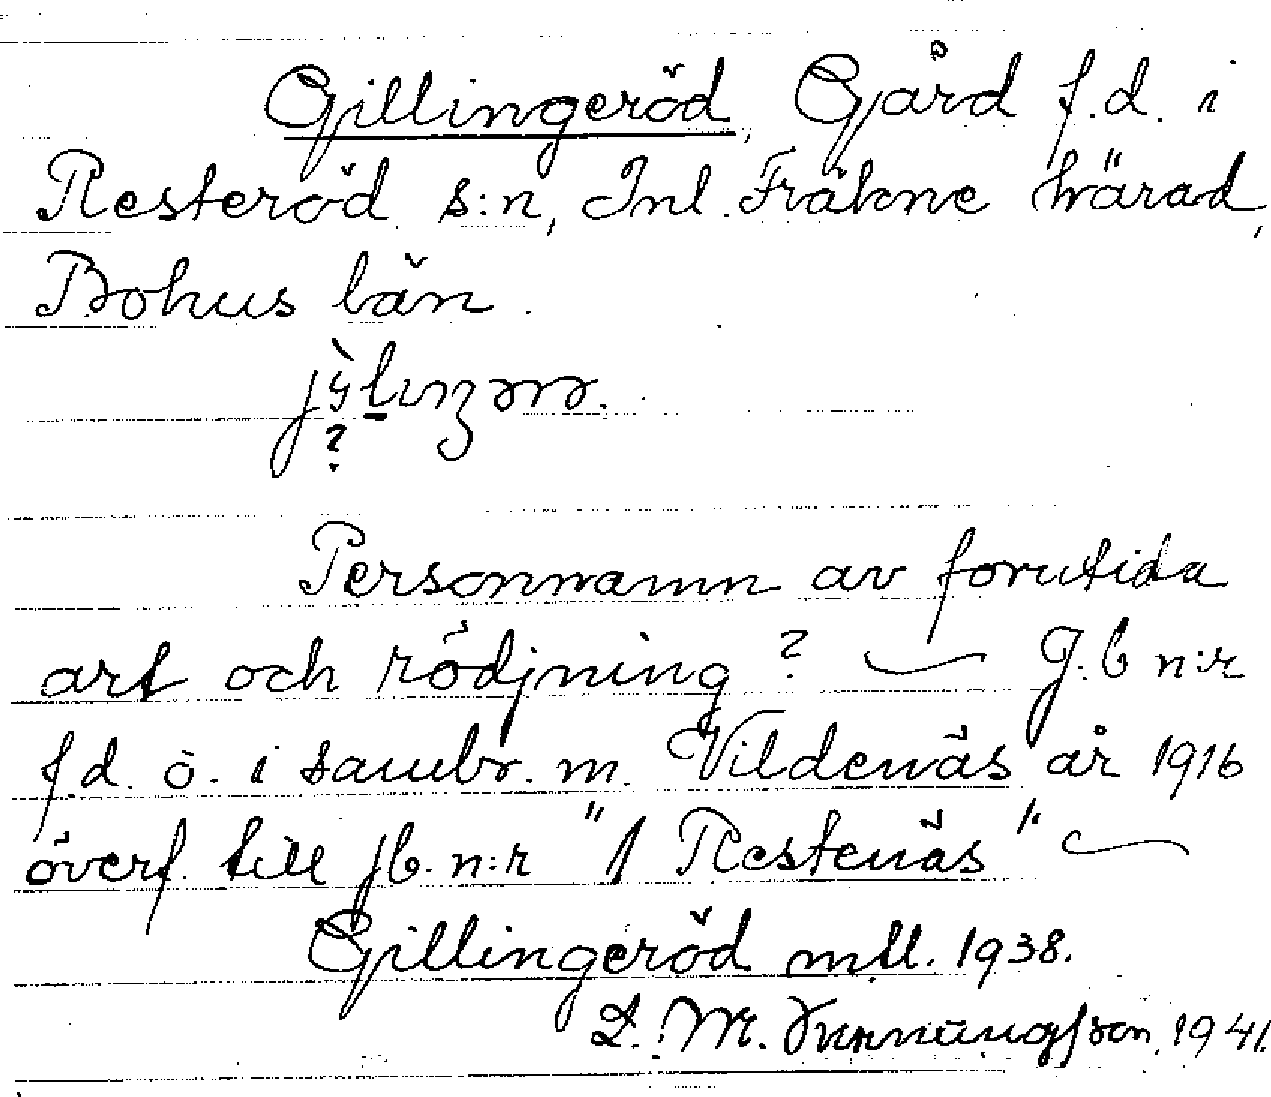 Gillingeröd, Gård f.d. i
Resteröd s:n, Inl. Fräkne härad,
Bohus län.
?
Personnamn av forntida
art och rödjning? — J.b n:r
f.d. ö. i sambr. m. Vildenäs år 1916
överf. till jb. n:r "1 Restenäs" —
Gillingeröd mtl. 1938.
L. M. 1941.